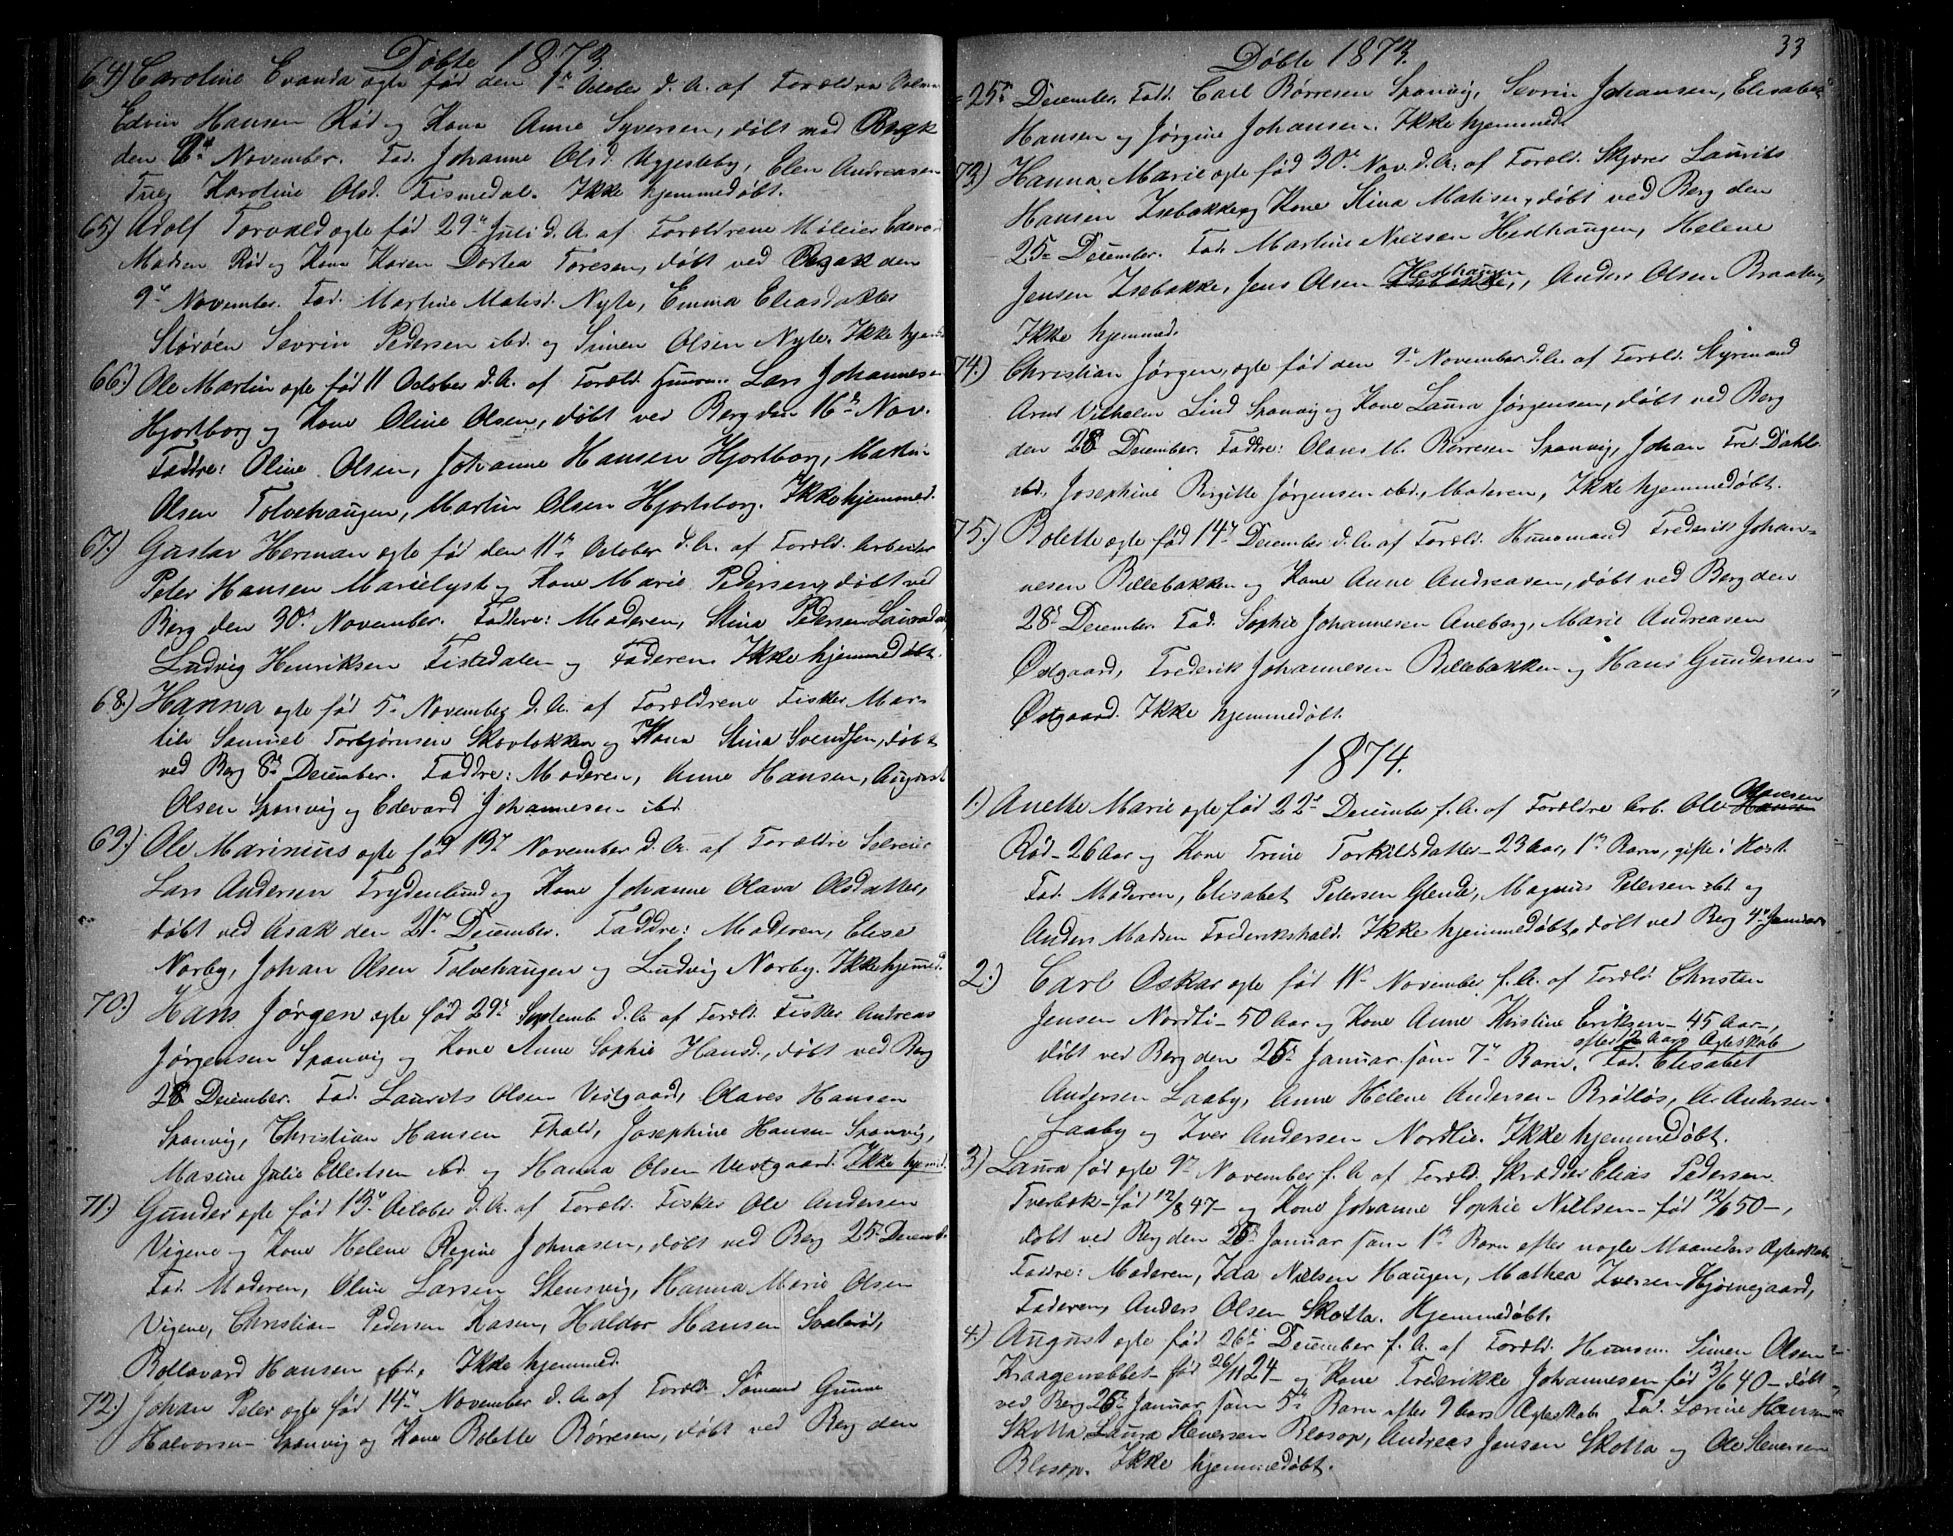 Døbte 1873.
64) Caroline Evanda ægte født den 1ste October d. A. af Forældrene
Edvin Hansen Rød og Kone Anne Syversen, døbt ved Berg K
den 2den November. Fad. Johanne Olsd. Uggesteby, Elen Andreasen
Karoline Olsd. Tismedal. Ikke hjemmedøbt.
65) Adolf Torvald ægte fød 29de Juli d. A. af Forældrene Møleier Edevard
Madsen Rød og Kone Karen Dortea Toresen, døbt ved Asak den
9de November. Fad. Martine Matisd. Nyte, Emma Eliasdatter
Storøen Sevrin Pedersen ibd. og Simen Olsen Nyte. Ikke hjemd.
66.) Ole Martin ægte fød 11 October d. A. af Foræld. Huusm. Lars Johannesen
Hjortborg og Kone Oline Olsen, døbt ved Berg den 16de Nov.
Faddre: Oline Olsen, Johanne Hansen Hjortborg, Martin
Olsen Tolvehaugen, Martin Olsen Hjortsborg. Ikke hjemmed.
67.) Gustav Herman ægte fød den 11te October d. A. af Foræld. Arbeider
Peter Hansen Marielyst og Kone Marie Pedersen, døbt ved
Berg den 30te November. Faddere: Moderen, Stina Pedersen
Ludvig Henriksen Tistedalen og Faderen. Ikke hjemmedøbt.
68.) Hanna ægte fød 5te November d. A. af Forældrene Fisker Mar-
tin Samuel Torbjørnsen Skovløkken og Kone Stina Svendsen, døbt
ved Berg 8de December. Faddre: Moderen, Anne Hansen, August
Olsen Sponvig og Edevard Johannesen ibd.
69.) Ole Marinius ægte fød 19de November d. A. af Forældre Selveier
Lars Andersen Frydenlund og Kone Johanne Olava Olsdatter,
døbt ved Asak den 21de December. Faddre: Moderen, Elise
Norby, Johan Olsen Tolvehaugen og Ludvig Norby. Ikke hjemd.
70.) Hans Jørgen ægte fød 29de Septemb. d. A. af Foræld. Fisker Andreas
Jørgensen Sponvig og Kone Anne Sophie Hansd., døbt ved Berg
28 December. Fad. Laurits Olsen Vestgaard, Olaves Hansen
Sponvig, Christian Hansen Fhald, Josephine Hansen Sponvig,
Masine Julie Ellertsen ibd. og Hanna Olsen Vestgaard. Ikke hjemd.
71.) Gunder ægte fød 13de October d. A. af Foræld. Fisker Ole Andersen
Vigene og Kone Helene Regine Johnasen, døbt ved Berg 25de Decemb.
Fad. Moderen, Oline Larsen Stensvig, Hanna Marie Olsen
Vigene, Christian Pedersen Kasen, Haldor Hansen
Hansen ibd., Ikke hjemmed.
72.) Johan Peter ægte fød 14de November d. A. af Foræld. Sømand Gunne
Halvorsen Sponvig og Kone Bolette Børresen, døbt ved Berg den
Døbte 1873.
33
25de December. Fad. Carl Børresen Sponvig, Sevrin Johansen, Elisabet
Hansen og Jørgine Johansen. Ikke hjemmed.
73.) Hanna Marie ægte fød 30te Nov. d. A. af Foræld. Skjører Laurits
Hansen Isebakke og Kone Stina Matisen, døbt ved Berg den
25de December. Fad. Martine Nielsen Hedhaugen, Helene
Jensen Isebakke, Jens Olsen Hedhaugen, Anders Olsen Braaten,
Ikke hjemmed.
74.) Christian Jørgen, ægte, fød den 9de November d. A. af Foræld. Styrmand
Arnt Vilhelm Lind Sponvig og Kone Laura Jørgensen, døbt ved Berg
den 28 December. Faddre: Olaves M. Børresen Sponvig, Johan Fred. Dahl
ibd., Josephine Birgitte Jørgensen ibd., Moderen, Ikke hjemmedøbt.
75.) Bolette ægte fød 14de December d. A. af Foræld. Huusmand Frederik Johan-
nesen Billebakken og Kone Anne Andreasen, døbt ved Berg den
28de December. Fad. Sophie Johannesen Aneberg, Marie Andreasen
Østgaard, Frederik Johannesen Billebakken og Hans Gundersen
Østgaard. Ikke hjemmedøbt.
1874.
1.) Anette Marie ægte fød 22de December f. A. af Forældre Arb. Ole Hansen Olausen
Rød - 26 Aar og Kone Trine Torkildsdatter - 23 Aar, 1ste Barn, gifte i Høst.
Fad. Moderen, Elisabet Petersen Glende, Magnus Petersen ibd. og
Anders Madsen Frederikshald. Ikke hjemmedøbt, døbt ved Berg 4de Januar
2.) Carl Oskar ægte fød 11te November f. A. af Foræld. Christen
Jensen Nordli - 50 Aar og Kone Anne Kristine Eriksen - 45 Aar -,
døbt ved Berg den 25de Januar som 7de Barn. efter 12 Aars Ægteskab Fad. Elisabet
Andersen Laaby, Anne Helene Andersen Brøtløs, A. Andersen
Laaby og Iver Andersen Nordlie. Ikke hjemmedøbt.
3.) Laura fød ægte 9de November f. A. af Foræld. Skrædder Elias Pedersen
Tverbæk - fød 12/8 47 - og Kone Johanne Sophie Nielsen - fød 12/6 50 -,
døbt ved Berg den 25de Januar som 1ste Barn efter nogle Maaneders Ægteskab.
Faddre: Moderen, Ida Nielsen Haugen, Mathea Iversen Hjørnegaard,
Faderen, Anders Olsen Skotta. Hjemmedøbt.
4.) August ægte fød 26de December f. A. af Foræld. Huusm. Simen Olsen
Kraagenebbet - fød 26/11 24 - og Kone Frederikke Johannesen fød 3/6 40 - døbt
ved Berg 25de Januar som 5te Barn efter 9 Aars Ægteskab. Fad. Lorine Hansen
Skotta, Laura Stenersen Blosop, Andreas Jensen Skotta og Ole Stenersen
Blosop. Ikke hjemmedøbt.